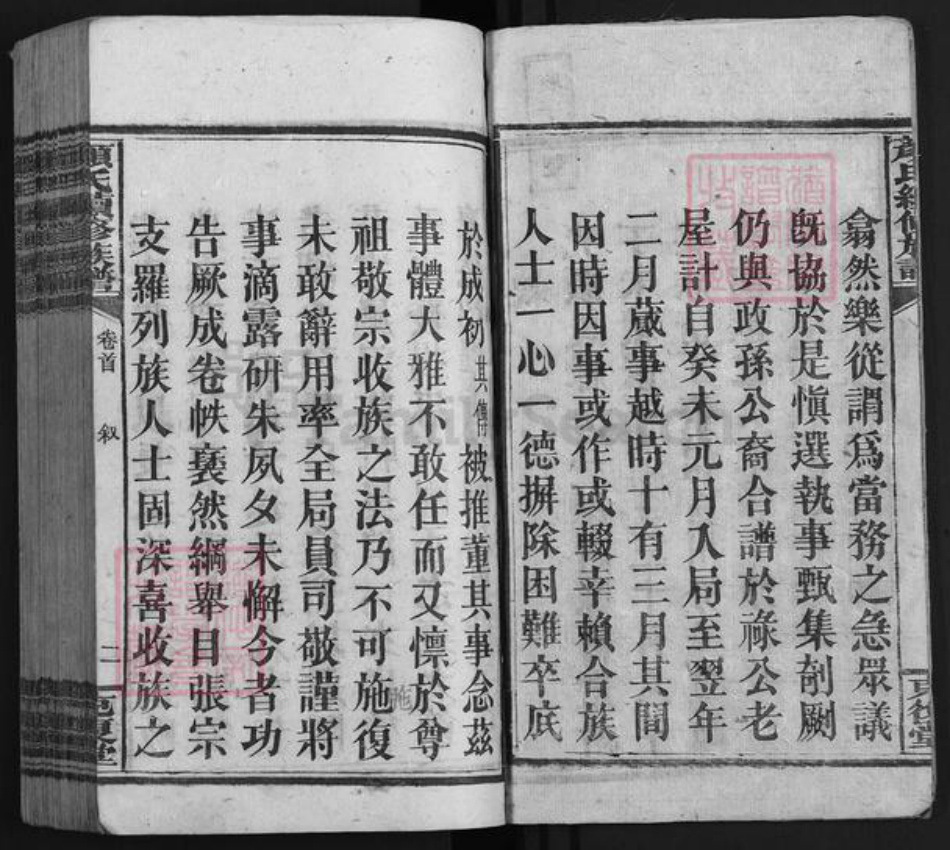 翕然樂從謂爲當務之急眾議
既協於是愼選執事甄集剞劂
仍與政孫公裔合譜於祿公老
屋計自癸未元月入局至翌年
二月蕆事越時十有三月其間
因時因事或作或輟幸賴合族
人士一心一德摒除困難卒底
於成初其僔被推董其事念茲
事體大雅不敢任而又懍於尊
祖敬宗收族之法乃不可施復
未敢辭用率全局員司敬謹將
事滴露研朱夙夕未懈今者功
告厥成卷帙裦然綱舉目張宗
支羅列族人士固深喜收族之
顏氏續修族譜
卷首
叙
二